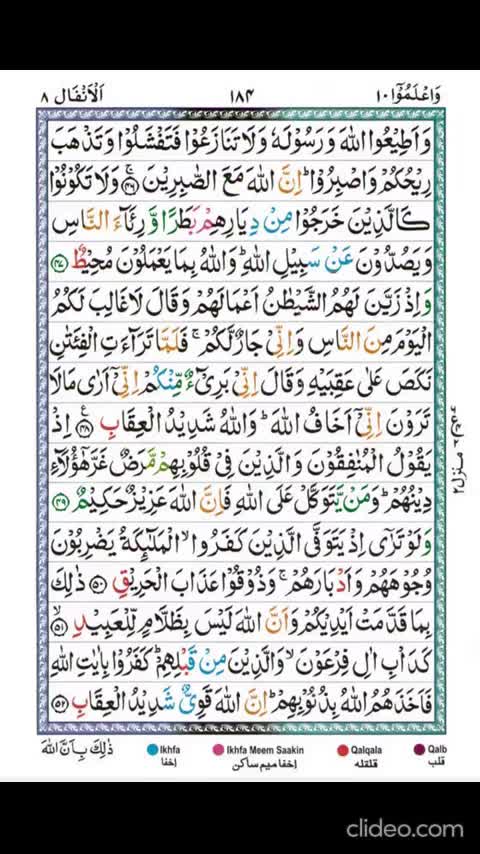 وَاعْلَمُوْۤا ۱۰ ۱۸۴ اَلْاَنْفَال ۸
وَاَطِيْعُوا اللّٰهَ وَرَسُوْلَهٗ وَلَا تَنَازَعُوْا فَتَفْشَلُوْا وَتَذْهَبَ
رِيْحُكُمْ وَاصْبِرُوْا ؕ اِنَّ اللّٰهَ مَعَ الصّٰبِرِيْنَ ۚ‏﴿۴۶﴾ وَلَا تَكُوْنُوْا
كَالَّذِيْنَ خَرَجُوْا مِنْ دِيَارِهِمْ بَطَرًا وَّرِئَآءَ النَّاسِ
وَيَصُدُّوْنَ عَنْ سَبِيْلِ اللّٰهِ ؕ وَاللّٰهُ بِمَا يَعْمَلُوْنَ مُحِيْطٌ ﴿۴۷﴾
وَاِذْ زَيَّنَ لَهُمُ الشَّيْطٰنُ اَعْمَالَهُمْ وَقَالَ لَا غَالِبَ لَكُمُ
الْيَوْمَ مِنَ النَّاسِ وَاِنِّىْ جَارٌ لَّكُمْ ۚ فَلَمَّا تَرَآءَتِ الْفِئَتٰنِ
نَكَصَ عَلٰى عَقِبَيْهِ وَقَالَ اِنِّىْ بَرِىْٓءٌ مِّنْكُمْ اِنِّىْۤ اَرٰى مَا لَا
تَرَوْنَ اِنِّىْۤ اَخَافُ اللّٰهَ ؕ وَاللّٰهُ شَدِيْدُ الْعِقَابِ ﴿۴۸﴾ اِذْ
يَقُوْلُ الْمُنٰفِقُوْنَ وَالَّذِيْنَ فِىْ قُلُوْبِهِمْ مَّرَضٌ غَرَّ هٰٓؤُلَآءِ
دِيْنُهُمْ ؕ وَمَنْ يَّتَوَكَّلْ عَلَى اللّٰهِ فَاِنَّ اللّٰهَ عَزِيْزٌ حَكِيْمٌ ﴿۴۹﴾
وَلَوْ تَرٰٓى اِذْ يَتَوَفَّى الَّذِيْنَ كَفَرُوا ۙ الْمَلٰٓئِكَةُ يَضْرِبُوْنَ
وُجُوْهَهُمْ وَاَدْبَارَهُمْ ۚ وَذُوْقُوْا عَذَابَ الْحَرِيْقِ ﴿۵۰﴾ ذٰلِكَ
بِمَا قَدَّمَتْ اَيْدِيْكُمْ وَاَنَّ اللّٰهَ لَيْسَ بِظَلَّامٍ لِّلْعَبِيْدِ ۙ‏﴿۵۱﴾
كَدَاْبِ اٰلِ فِرْعَوْنَ ۙ وَالَّذِيْنَ مِنْ قَبْلِهِمْ ؕ كَفَرُوْا بِاٰيٰتِ اللّٰهِ
فَاَخَذَهُمُ اللّٰهُ بِذُنُوْبِهِمْ ؕ اِنَّ اللّٰهَ قَوِىٌّ شَدِيْدُ الْعِقَابِ ﴿۵۲﴾
منزل ۲
ذٰلِكَ بِاَنَّ اللّٰهَ
Ikhfa Ikhfa Meem Saakin Qalqala Qalb
اِخفا اِخفا میم ساکن قلقلہ قلب
clideo.com